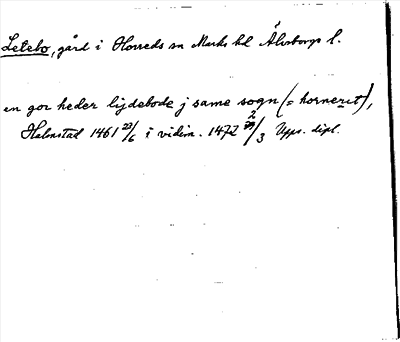 Letebo, gård i Horreds sn Marks hd Älvsborgs l.
en gor heder lijdebode j same sogn (= horneret),
Halmstad 1461 22/6 i vidim. 1472 2/3 Upps. dipl.